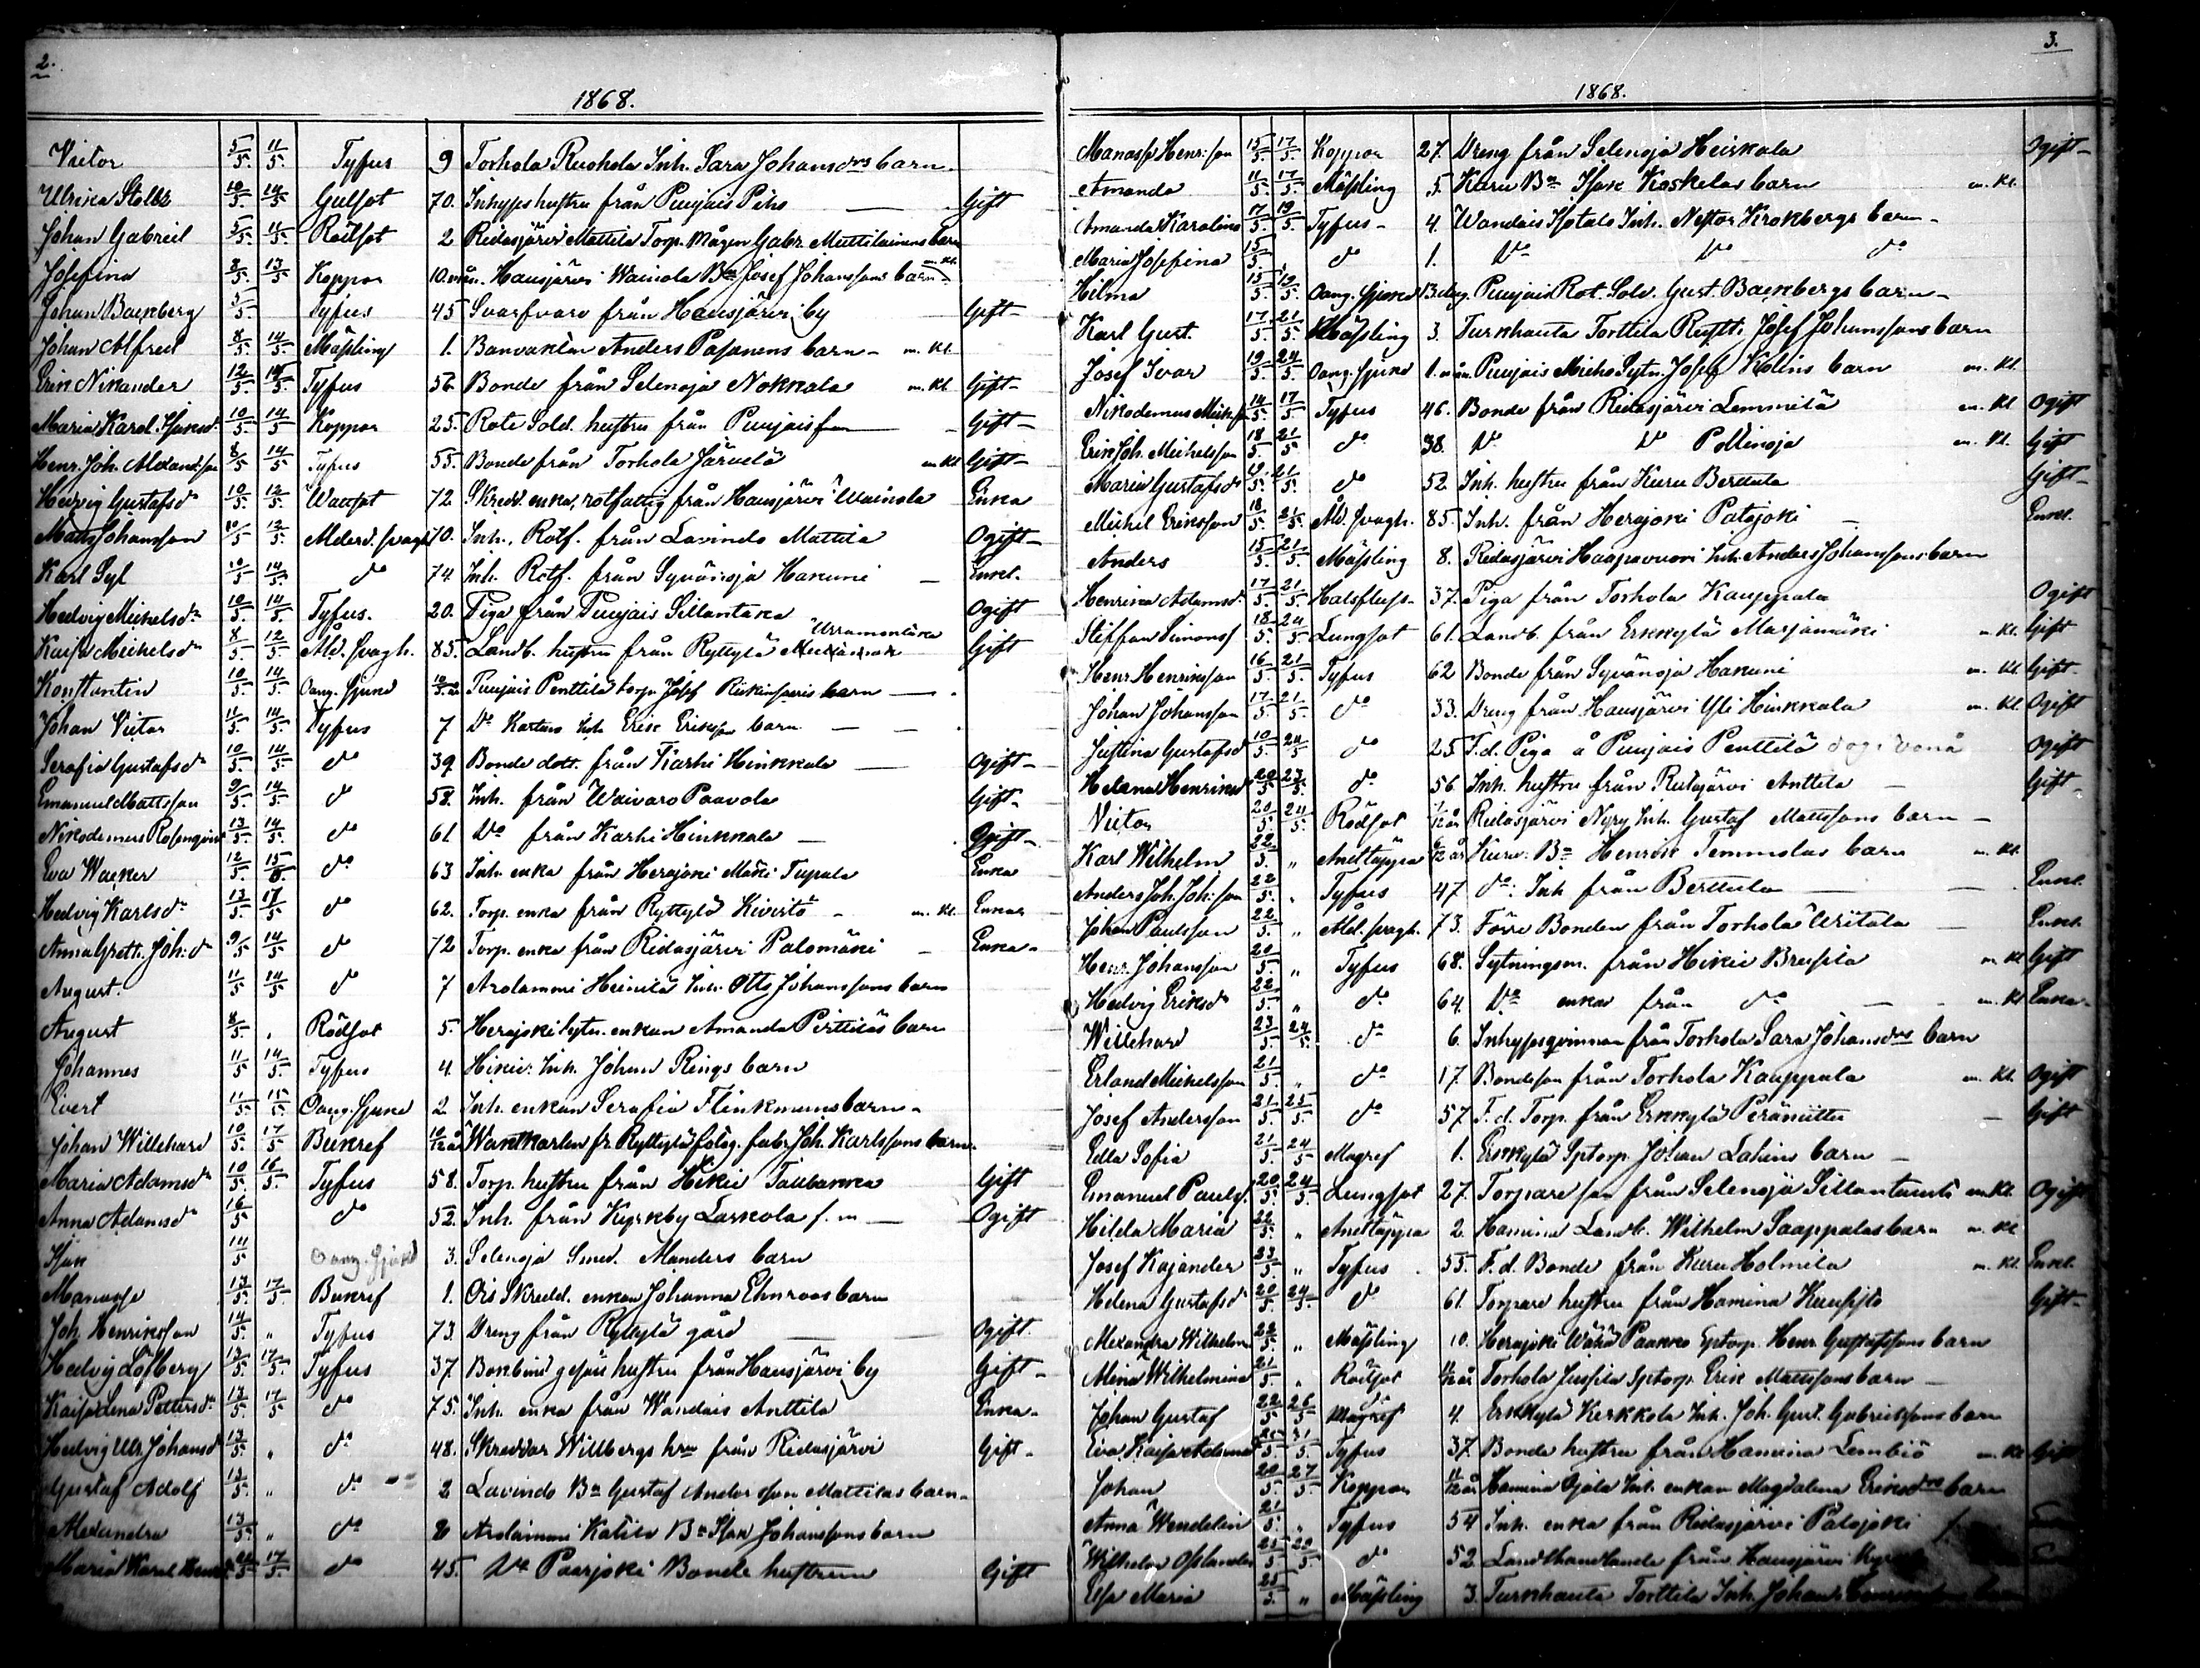 2.
1868.
Victor 5/5 11/5 Tyfus 9 Torhola Ruohola Inh. Sara Johansdrs barn
Ulrica Stolbr 10/5 14/5 Gulsot 70. Inhyses hustru från Puujais Piho Gift
Johan Gabriel 5/5 11/5 Rödsot 2 Ridasjärvi Mattila Torp. Mågen Gabr. Mattilainens barn
Josefina 8/5 13/5 Koppor 10 mån. Hausjärvi Wainola Bn Josef Johanssons barn m. kl.
Johan Backberg 5/5 Tyfus 45 Svarfvare från Hausjärvi by Gift
Johan Alfred 8/5 14/5 Mässling 1. Banvakten Anders Pasanens barn m. kl.
Erik Nikander 12/5 14/5 Tyfus 56 Bonde från Selenoja Nokkala m. kl. Gift
Maria Karol. Isaksd. 10/5 14/5 Koppor 25. Rote Sold. hustru från Puujais Gift
Henr. Joh. Alexandsson 8/5 14/5 Tyfus 55. Bonde från Torhola Järvelä m kl Gift
Hedvig Gustafsdr 10/5 12/5 Wattsot 72 Skredd. enka, rotfattig från Hausjärvi Wainola Enka
Matts Johansson 10/5 12/5 Alderd. svagh. 70. Inh. Rotf. från Lavinto Mattila Ogift
Karl Syl 10/5 14/5 do 74 Inh. Rotf. från Syvänoja Hakuni Enkl.
Hedvig Michelsdr 10/5 14/5 Tyfus. 20. Piga från Puujais Sillantaka Ogift
Kaisa Michelsdr 8/5 12/5 Åld. svagh. 85. Landb. hustru från Ryttylä Gift
Konstantin 10/5 14/5 Oang. Sjukd Puujais Penttilä torp. Josef barn
Johan Victor 11/5 14/5 Tyfus 7 Do Inh. Erik Eriksson barn
Serafia Gustafsdr 10/5 14/5 do 39 Bonde dott. från Karhi Hinkkala Ogift
Emanuel Mattsson 9/5 14/5 do 58. Inh. från Waivaro Paavola Gift
Nikodemus Rosenqvist 13/5 14/5 do 61 Do från Karhi Hinkkala Ogift
Eva Wacker 12/5 15/5 do 63 Inh. enka från Herajoki Mäki Tupala Enka
Hedvig Karlsdr 13/5 17/5 do 62. Torp. enka från Ryttylä Kivistö m. kl. Enka
Anna Greth. Joh:dr 9/5 14/5 do 72 Torp. enka från Ridasjärvi Palomäki Enka
August. 11/5 14/5 do 7 Arolammi Heinilä Inh. Otto Johanssons barn
August 8/5 " Rödsot 5. Herajoki sytn. enkan Amanda Perttiläs barn
Johannes 11/5 14/5 Tyfus 4. Hikie: Inh. Johan Rings barn
Evert 11/5 15/5 Oang. Sjukd 2 Inh. enkan Serafia Flinkmans barn
Johan Willehard 10/5 17/5 Bukref 10/12 år Waktkarlen fr. Ryttylä Joh. Karlssons barn
Maria Adamsdr 10/5 16/5 Tyfus 58. Torp. hustru från Hikie Taubacka Gift
Anna Adamsdr 16/5 do 52. Inh. från Kyrkby Laskola f. m Ogift
Isak 14/5 Oang. Sjukd 3. Selenoja Smed. Manders barn
Manasse 13/5 17/5 Bukref 1. Ois Skredd. enkan Johanna Ehnroos barn
Joh. Henriksson 14/5 " Tyfus 73. Dreng från Ryttylä gård Ogift.
Hedvig Löfberg 13/5 17/5 Tyfus 37. Bokbind. hustru från Hausjärvi by Gift
Kaisa Lena Pettersdr 13/5 17/5 do 75. Inh. enka från Wandais Anttila Enka
Hedvig Ulr. Johansd 13/5 " do 48. Skreddar Willbergs hru från Ridasjärvi Gift
Gustaf Adolf 13/5 " do 2 Lavindo Bn Gustaf Andersson Mattilas barn
Alexandra 13/5 " do 8 Arolammi Katila Bn Isak Johanssons barn
Maria Karol. 17/5 do 45. Do Paarjoki Bonde hustrun Gift
3.
1868.
Manasse Henr:son 15/5 17/5 Koppor 27. Dreng från Selenoja Heikkala Ogift
Amanda 11/5 17/5 Mässling 5. Karu Bn Isak Koskelas barn m. kl.
Amanda Karolina 17/5 19/5 Tyfus 4. Wandais Isotalo Inh. Nestor Krokbergs barn
Maria Josefina 15/5 " do 1. Do Do do
Hilma 15/5 19/5 Oang. Sjukd 13 dag. Puujais Rot. Sold. Gust. Backbergs barn
Karl Gust. 17/5 21/5 Mässling 3. Turkhauta Torttila Rustt. Josef Johanssons barn
Josef Ivar 19/5 24/5 Oang. sjukd 1. mån. Puujais Micko Sytn. Josef Kolins barn m. kl.
Nikodemus Michss 14/5 17/5 Tyfus 46. Bonde från Ridasjärvi Lemmilä m. kl Ogift
Erik Joh. Michelsson 18/5 21/5 do 38. Do Do Pollinoja m. kl. Gift
Maria Gustafsdr 19/5 21/5 do 52 Inh. hustru från Kuru Berttula Gift
Michel Eriksson 18/5 21/5 Åld. svagh. 85. Inh. från Herajoki Patojoki Enkl.
Anders 15/5 21/5 Mässling 8. Ridasjärvi Haapavuori Inh. Anders Johanssons barn
Henrica Adamsdr 17/5 21/5 Halsfluss 37. Piga från Torhola Kauppala Ogift
Steffan Simonss 18/5 24/5 Lungsot 61. Landb. från Erkkylä Marjamäki m. kl. Gift
Henr. Henriksson 16/5 21/5 Tyfus 62 Bonde från Syvänoja Hakuni m. kl. Gift
Johan Johansson 17/5 21/5 do 33. Dreng från Hausjärvi Yli Hinkkala m. kl. Ogift
Justina Gustafsdr 10/5 24/5 do 25. F.d. Piga å Puujais Penttilä dog i Vanå Ogift
Helena Henriksd 20/5 23/5 do 56. Inh. hustru från Ridasjärvi Anttila Gift
Victor 20/5 24/5 Rödsot 1/12 år Ridasjärvi Nyry Inh. Gustaf Mattssons barn
Karl Wilhelm 22/5 " Andtäppa 6/12 år Kuru: Bn Henrik Temmolas barn m. kl.
Anders Joh. Joh:son 22/5 " Tyfus 47 do: Inh från Berttula Enkl.
Johan Paulsson 22/5 " Åld. svagh. 73. Förre Bonden från Torhola Uritala Enkl.
Henr. Johansson 20/5 " Tyfus 68. Sytningsm. från Hikie Brusila m kl Gift
Hedvig Eriksdr 22/5 " do 64. Do enka från do m. kl Enka
Willehard 23/5 24/5 do 6. Inhysesqvinnan från Torhola Sara Johansdrs barn
Erland Michelsson 21/5 " do 17. Bondeson från Torhola Kauppala m. kl. Ogift
Josef Andersson 21/5 25/5 do 57. F. d. Torp. från Erkkylä Peräniittu Gift
Edla Sofia 21/5 24/5 Magref 1. Erkkylä Sptorp. Johan Lahins barn
Emanuel Paulss. 20/5 24/5 Lungsot 27. Torpare son från Selenoja Sillantausta m. kl. Ogift
Hilda Maria 22/5 " Andtäppa 2. Hamina Landb. Wilhelm Saappalas barn m. kl
Josef Kajander 23/5 " Tyfus 55. F. d. Bonde från Kuru Holmila m. kl. Enkl.
Helena Gustafsdr 20/5 24/5 do 61. Torpare hustru från Hamina Kuusisto Gift
Alexandra Wilhelm. 22/5 " Mässling 10. Herajoki Wähä Paakko Sptorp. Henr. Gustafssons barn
Mina Wilhelmina 21/5 " Rödsot Torhola Jussila Sptorp. Erik Mattssons barn
Johan Gustaf 22/5 26/5 Magref 4. Erkkylä Kerkkola Inh. Joh. Gust. Gabrielssons barn
Eva Kaisa Adamsd 25/5 31/5 Tyfus 37. Bonde hustru från Hamina Lembiö m. kl Gift
Johan 20/5 27/5 Koppor 11/12 år Hamina Ojala Inh. enkan Magdalena Eriksdrs barn
Anna Wendelin 21/5 " Tyfus 54 Inh. enka från Ridasjärvi Patojoki
Wilhelm Oslander 21/5 29/5 do 52. Landthandlande från Hausjärvi
Elsa Maria 25/5 " Mässling 3. Turkhauta Torttila Inh. Johan